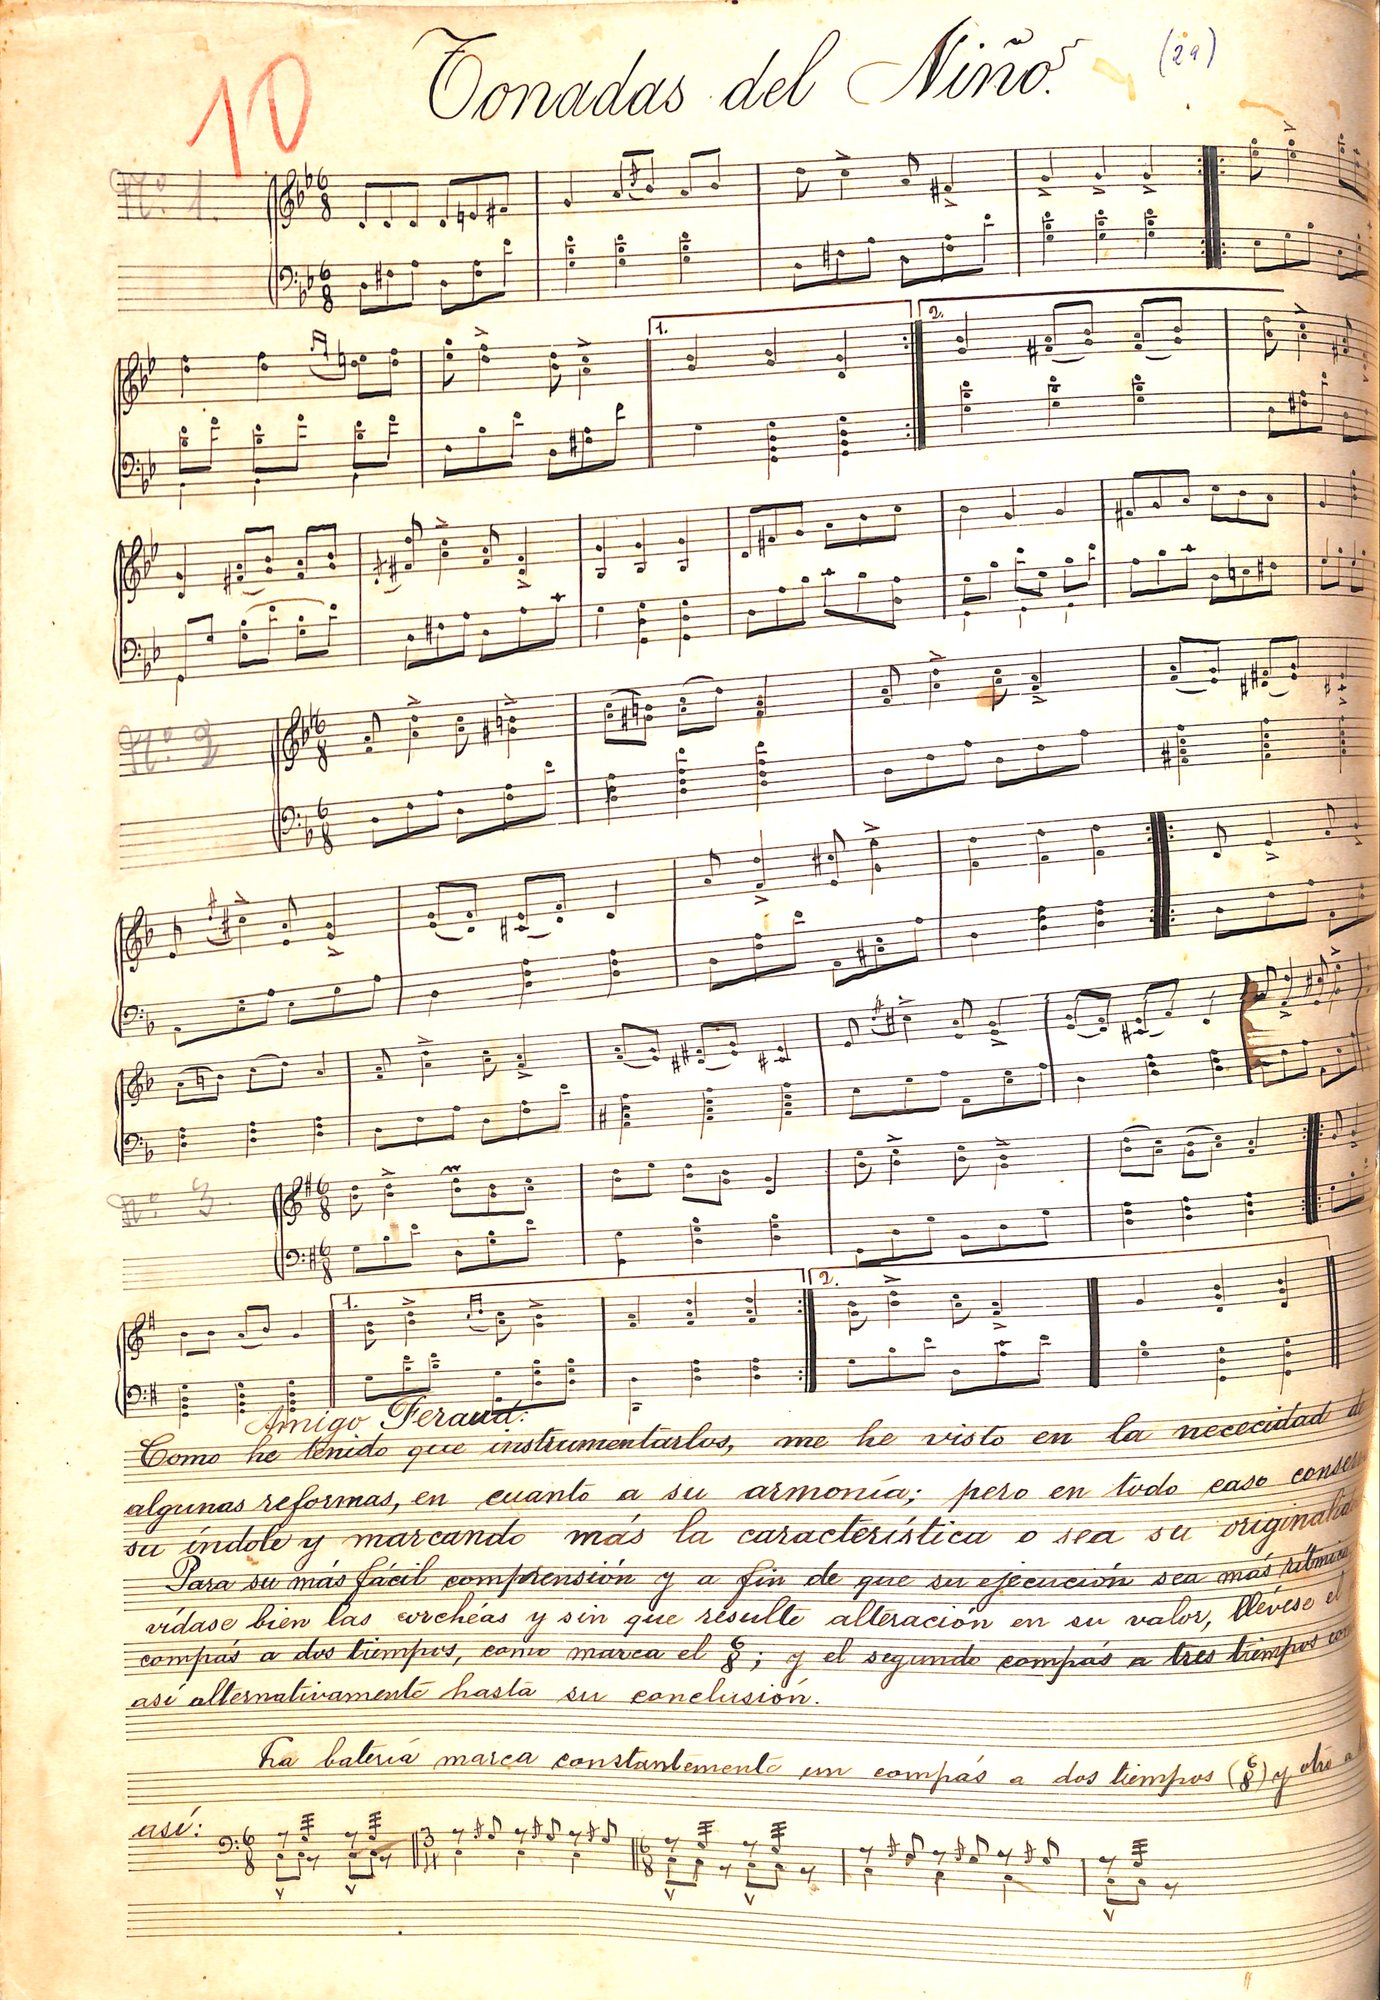 Tonadas del Niño.
(29)
10
Nº. 1.
6 8
6 8
1.
2.
Nº. 2
6 8
6 8
Nº. 3.
6 8
6 8
1.
2.
Amigo Feraud:
Como he tenido que instrumentarlos, me he visto en la nececidad de
algunas reformas, en cuanto a su armonía; pero en todo caso
su índole y marcando más la característica o sea su
Para su más fácil comprensión y a fin de que su ejecución sea más
vídase bien las corchéas y sin que resulte alteración en su valor, llévese el
compás a dos tiempos, como marca el 6 8; y el segundo compás a tres tiempos
así alternativamente hasta su conclusión.
La batería marca constantemente un compás a dos tiempos (6 8) y otro a
así:
6 8 3 4 6 8